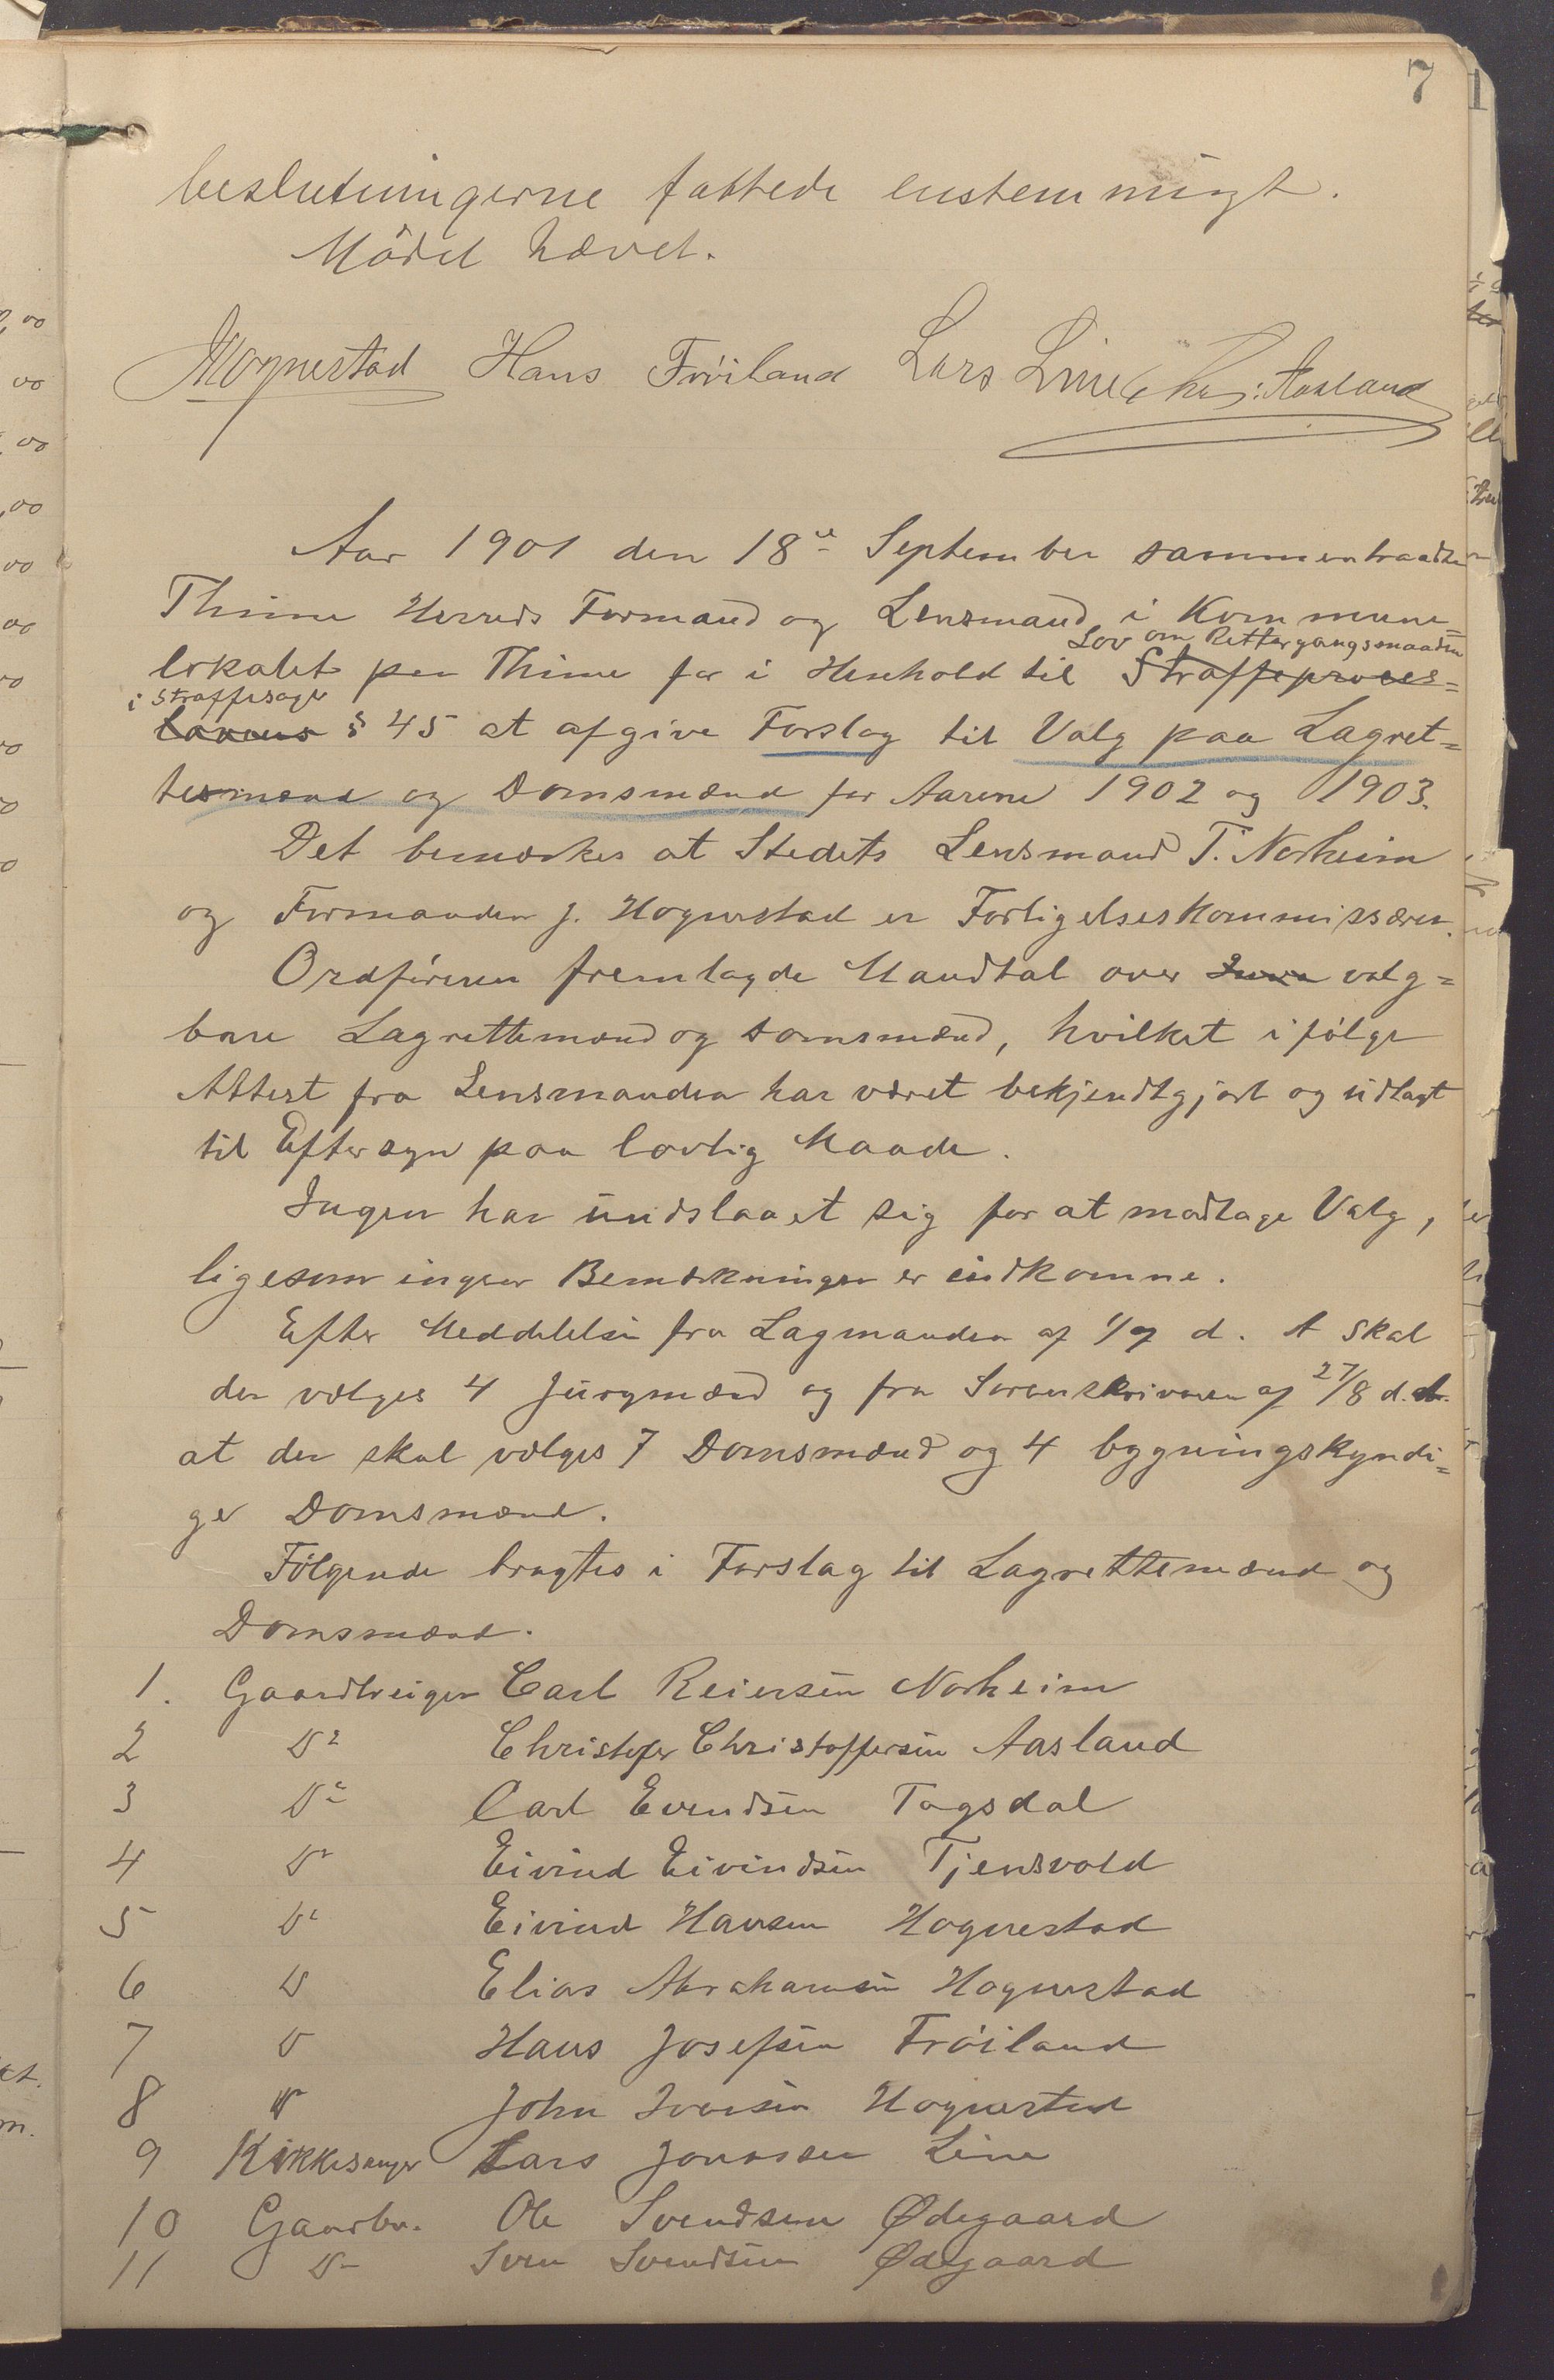 7
beslutningerne fattede enstemmigt.
Mödet hævet.
Hognestad Hans Fröiland Lars Lime Chr: Aasland
Aar 1901 den 18de September sammentraadte
Thime Herreds Formand og Lensmand i Kommune=
Lov om Rettergangsmaaden
lokalet paa Thime for i Henhold til Straffeproces=
i Straffesager
lovens § 45 at afgive Forslag til Valg paa Lagret=
tesmænd og Domsmænd for Aarene 1902 og 1903.
Det bemærkes at Stedets Lensmand T. Norheim
og Formanden J. Hognestad er Forligelseskommissærer.
Ordföreren fremlagde Mandtal over valg=
bare Lagrettemænd og Domsmænd, hvilket ifölge
Attest fra Lensmanden har været bekjendtgjort og udlagt
til Eftersyn paa lovlig Maade.
Ingen har undslaaet sig for at modtage Valg,
ligesom ingen Bemærkninger er indkomne.
Efter Meddelelse fra Lagmanden af 1/7 d. A skal
der vælges 4 Jurymænd og fra Sorenskriveren af 27/8 d.A.
at der skal vælges 7 Domsmænd og 4 bygningskyndi=
ge Domsmænd.
Fölgende bragtes i Forslag til Lagrettemænd og
Domsmænd.
1. Gaardbruger Carl Reiersen Norheim
2 Do Christofer Christoffersen Aasland
3 Do Carl Evendsen Tagsdal
4 Do Eivind Eivindsen Tjensvold
5 Do Eivind Hansen Hognestad
6 Do Elias Abrahamsen Hognestad
7 D Hans Josefsen Fröiland
8 Do John Iversen Hognestad
9 Kirkesanger Lars Jonassen Lime
10 Gaardbr. Ole Svendsen Ødegaard
11 Do Sven Svendsen Ødegaard